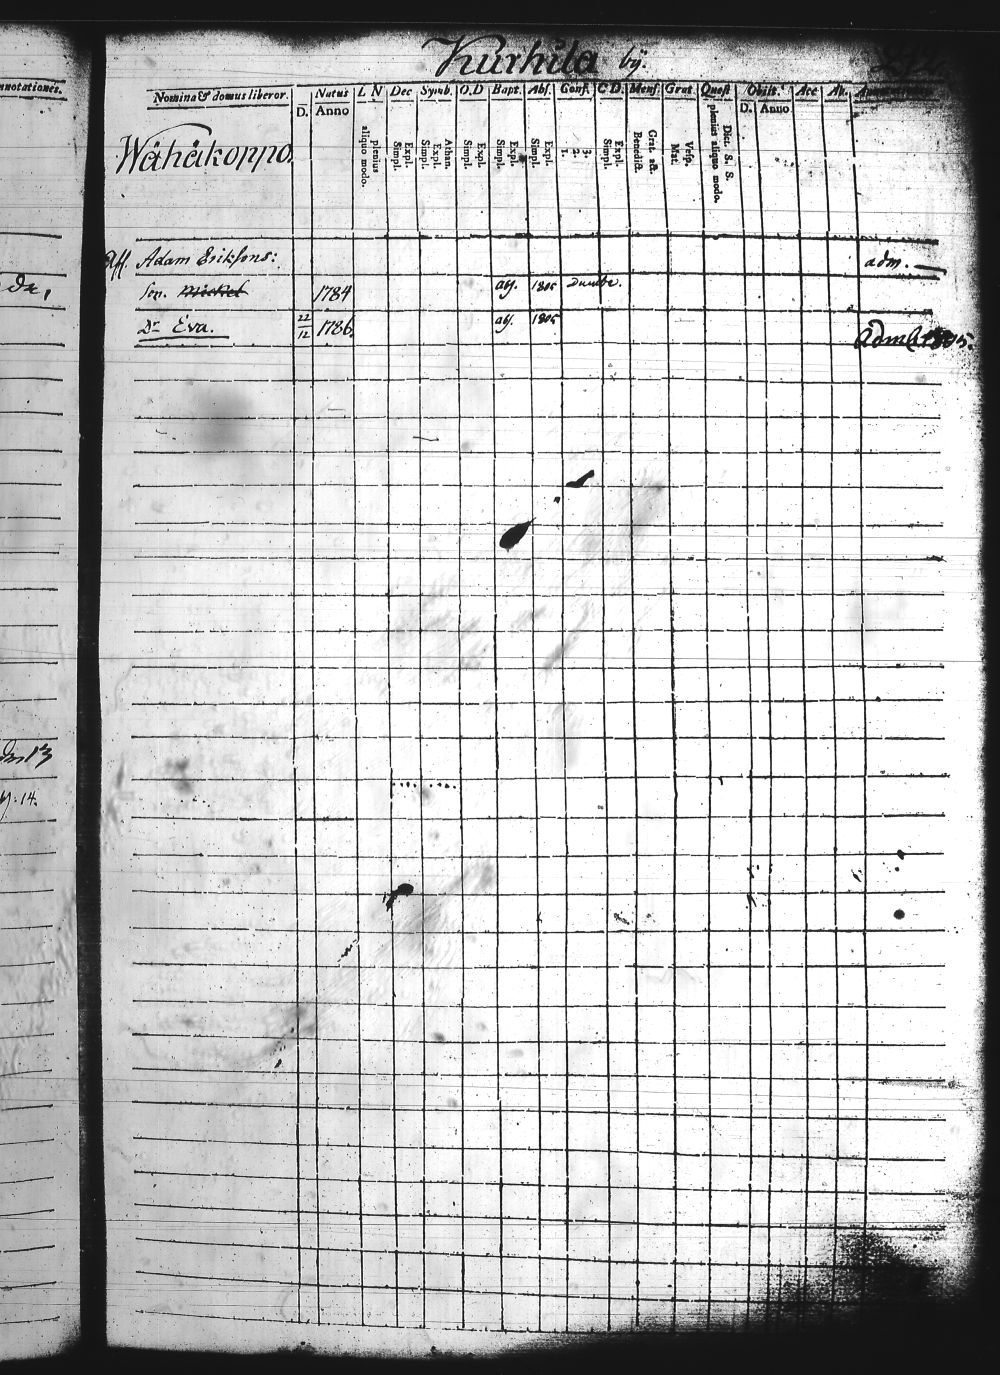 Kurhila by.
nnotationes.
Nomina & domus liberor. Natus L N Dec Symb. O.D Bapt. Abs. Conf. C D. Mens. Grat Quæst Obiit. Acc Ab.
D. Anno D. Anno
plenius aliquo modo. Expl. Simpl. Athan. Expl. Simpl. Expl. Simpl. Expl. Simpl. Expl. Simpl. 3. 2. 1. Expl. Simpl. Grat. act. Benedict. Vesp. Mat. Dict. S. S. plenius aliquo modo.
Wähäkoppo.
Aff. Adam Erikssons: adm.
Son. Mickel 1784 abs. 1805
Dr Eva. 22/12 1786. abs. 1805
13
14.